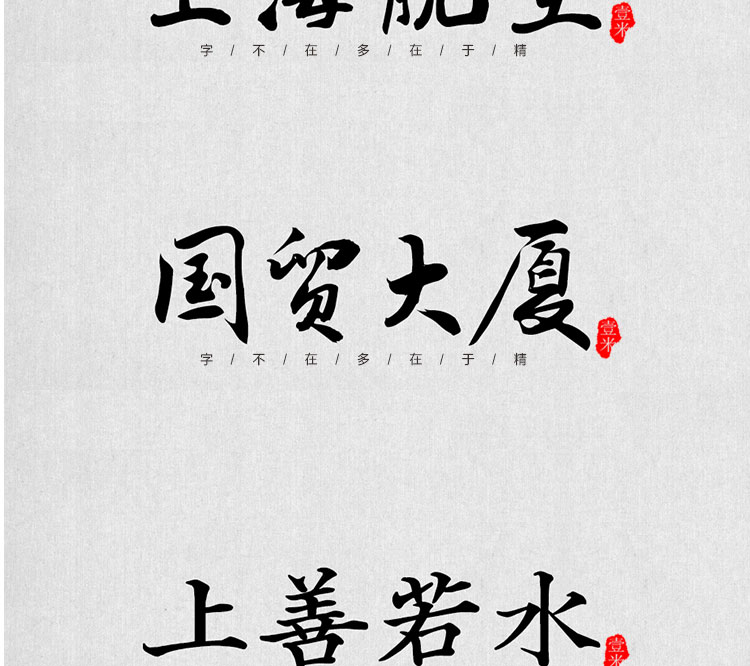 上海航空
壹米
字/不/在/多/在/于/精
国贸大厦
壹米
字/不/在/多/在/于/精
上善若水
壹米